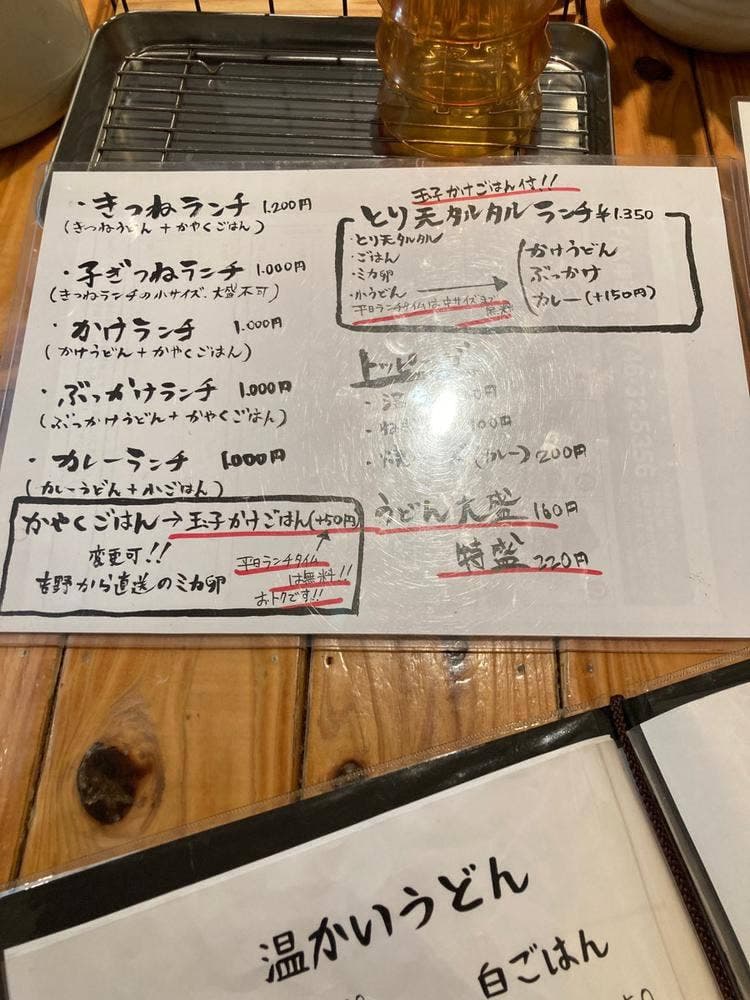 ・きつねランチ 1.200円
(きつねうどん + かやくごはん)
・子ぎつねランチ 1.000円
(きつねランチの小サイズ、大盛不可)
・かけランチ 1.000円
(かけうどん + かやくごはん)
・ぶっかけランチ 1.000円
(ぶっかけうどん + かやくごはん)
・カレーランチ 1.000円
(カレーうどん + 小ごはん)
かやくごはん→玉子かけごはん(+50円)
変更可!!
平日ランチタイム
は無料!!
おトクです!!
吉野から直送のミカ卵
玉子かけごはん付!!
とり天タルタルランチ ¥1.350
・とり天タルタル
・ごはん
・ミカ卵
・小うどん
かけうどん
ぶっかけ
カレー(+150円)
平日ランチタイムは中サイズまで
無料
トッピング
・温
・ね 100円
(カレー) 200円
うどん大盛 160円
特盛 220円
温かいうどん
白ごはん